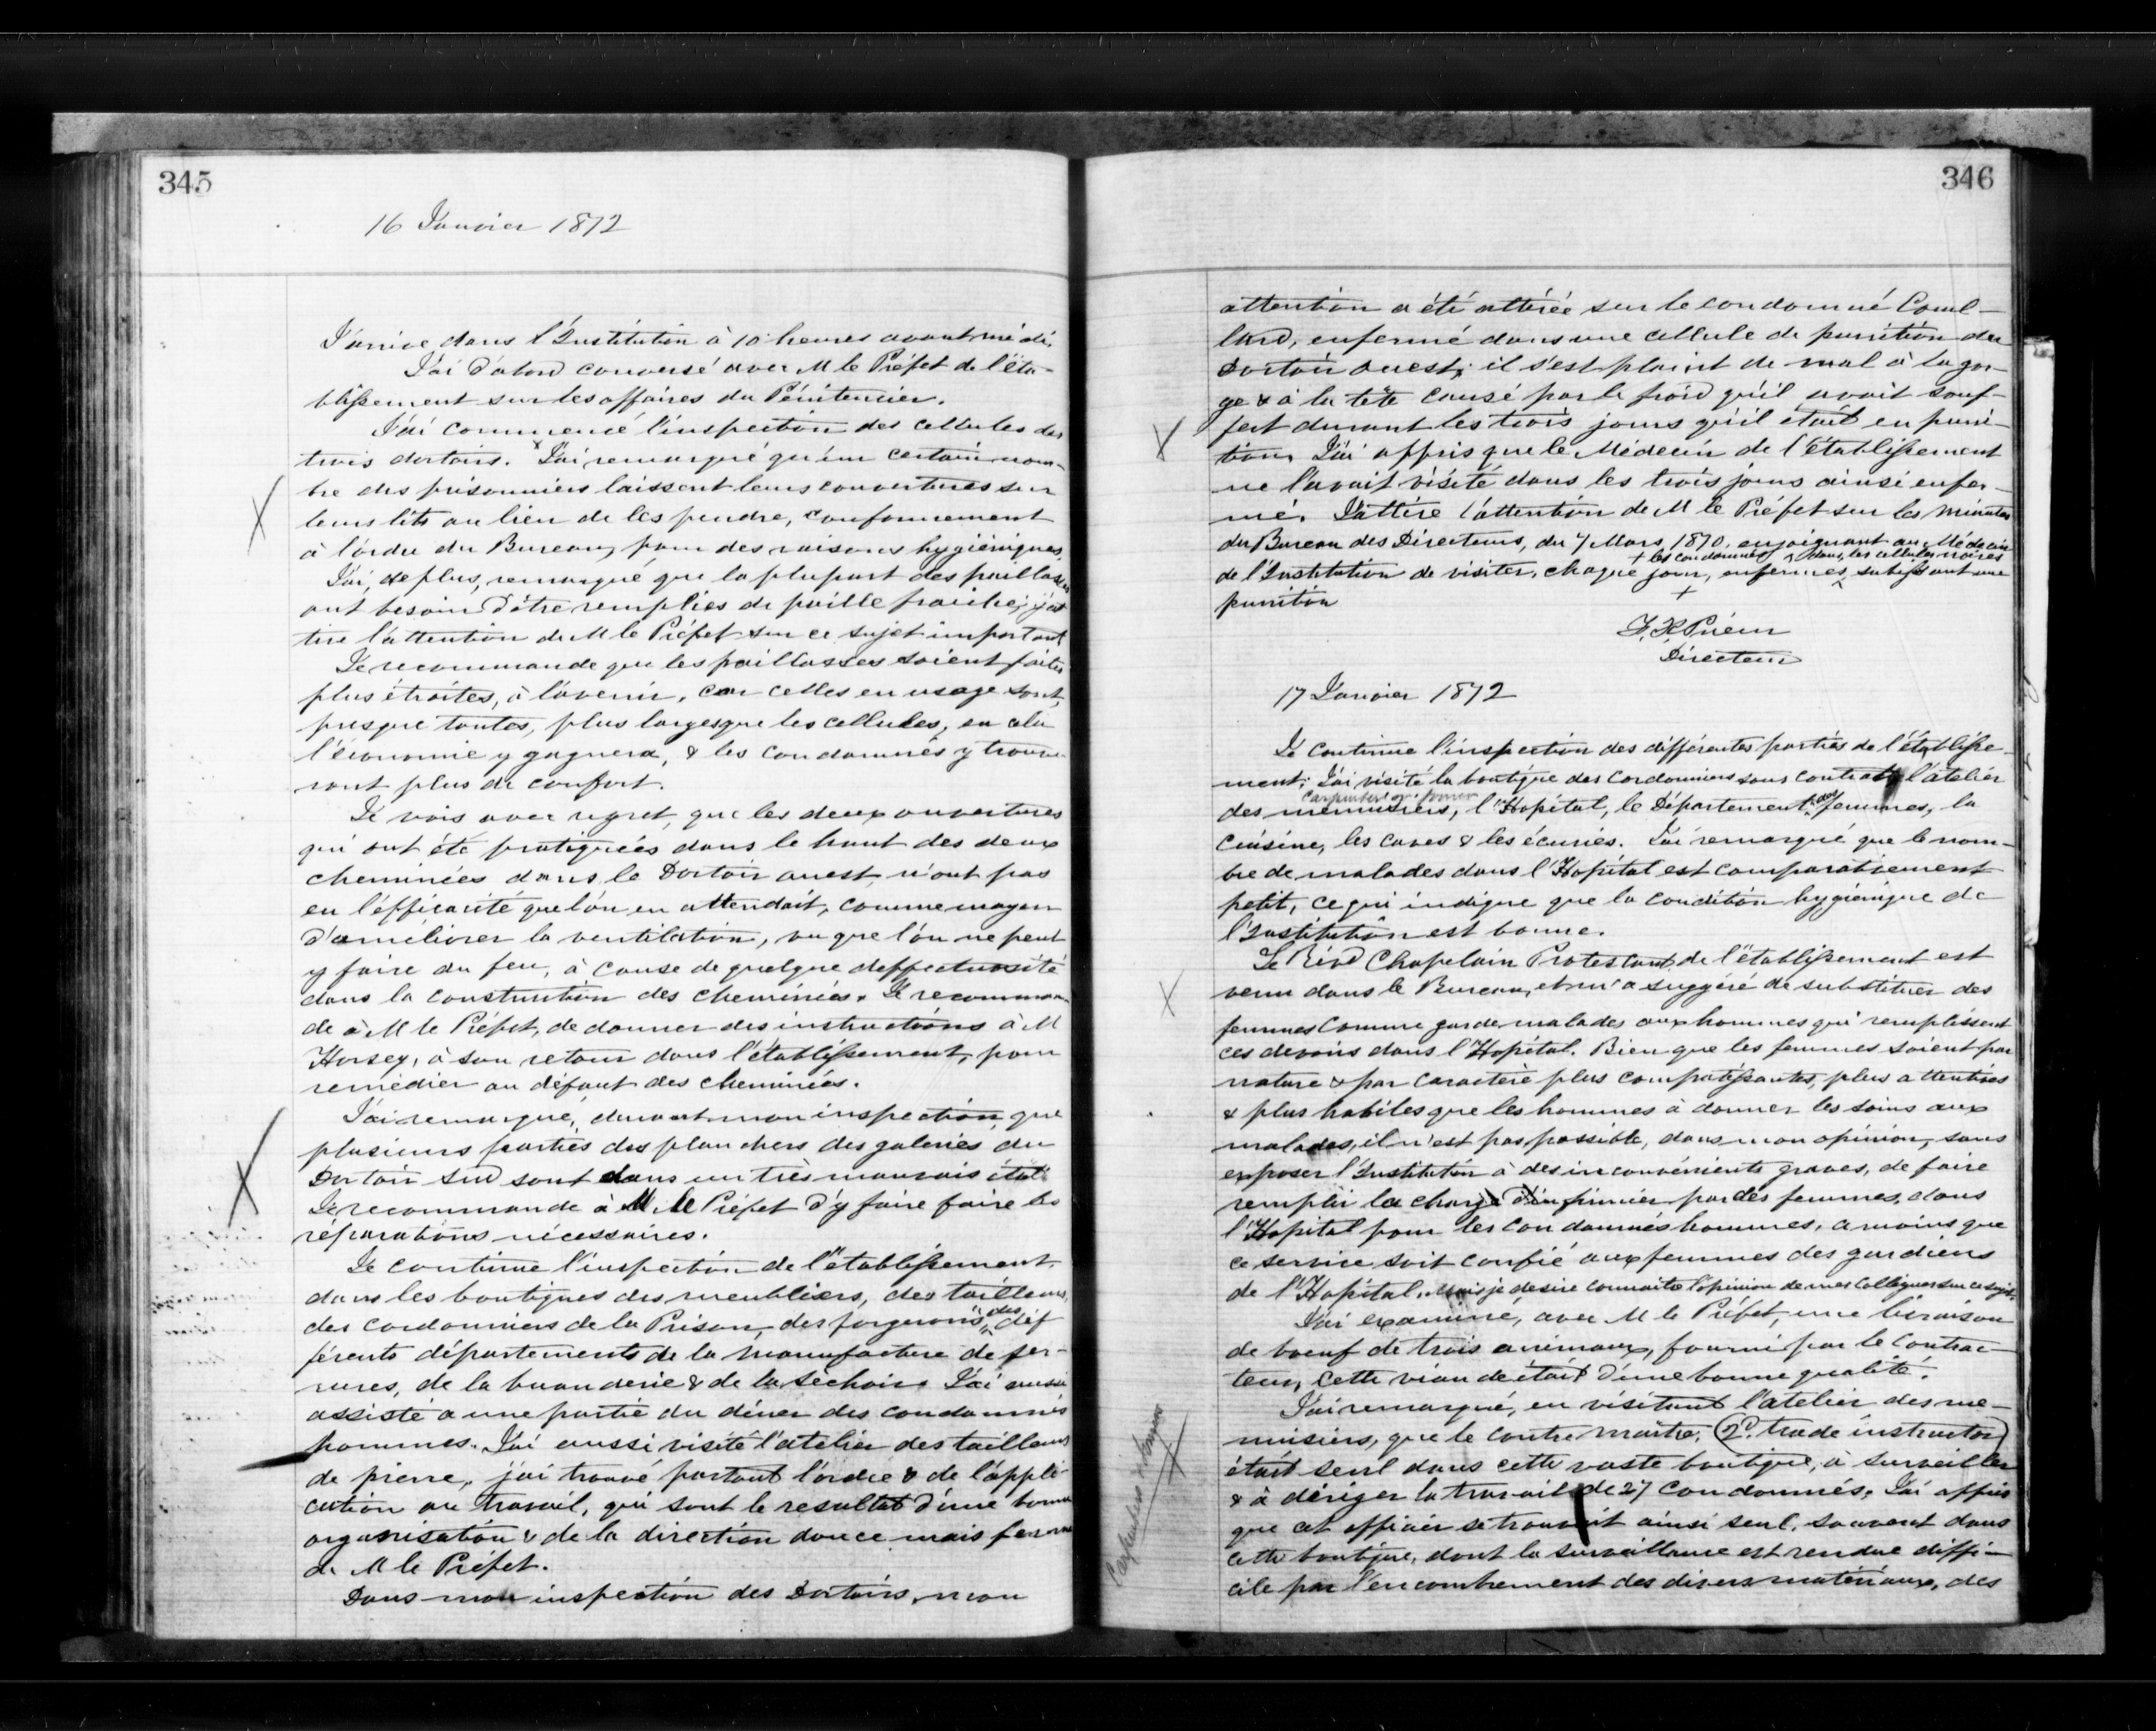 345
16 Janvier 1872
J'arrive dans l'Institution à 10 heures avant midi.
J'ai d'abord conversé avec M le Préfet de l'éta-
blissement sur les affaires du Pénitencier.
J'ai commencé l'inspection des cellules des
trois dortoirs. J'ai remarqué qu'un certain nom-
bre des prisonniers laissent leurs couvertures sur
leurs lits au lieu de les pendre, conformement
à l'ordre du Bureau, pour des raisons hygiéniques.
J'ai, de plus, remarqué que la plupart des paillasses
ont besoin d'être remplies de paille fraiche; j'at
tire l'attention de M le Préfet sur ce sujet important
Je recommande que les paillasses soient faites
plus étroites, à l'avenir, car celles en usage sont,
presque toutes, plus larges que les cellules, en cela
l'économie y gagnera, & les condamnés y trouve-
ront plus de confort.
Je vois avec regret, que les deux ouvertures
qui ont été pratiquées dans le haut des deux
cheminées dans le Dortoir ouest, n'ont pas
eu l'éfficacité que l'on en attendait, comme moyen
d'ameliorer la ventilation, vu que l'on ne peut
y faire du feu, à cause de quelque deffectuosité
dans la construction des cheminées. Je recomman-
de à M le Préfet, de donner des instructions à M
Horsey, à son retour dans l'établissement, pour
remédier au défaut des cheminées.
J'ai remarqué, durant mon inspection, que
plusieurs parties des planchers des galeries du
Dortoir Sud sont dans un très mauvais état.
Je recommande à M le Préfet d'y faire faire les
réparations nécessaires.
Je continue l'inspection de l'établissement,
dans les boutiques des meubliers, des tailleurs,
des cordonniers de la Prison, des forgerons, des dif
férents départements de la manufacture de fer-
rures, de la buanderie & de la séchoir. J'ai aussi
assisté a une partie du diner des condamnés
hommes. J'ai aussi visité l'atelier des tailleurs
de pierre, j'ai trouvé partout l'ordre & de l'appli-
cation au travail, qui sont le resultat d'une bonne
organisation & de la direction douce mais ferme
de M le Préfet.
Dans mon inspection des Dortoirs, mon
346
attention a été attirée sur le condamné Coul-
lard, enfermé dans une cellule de punition du
Dortoir ouest; il s'est plaint de mal à la gor-
ge & à la tête causé par le froid qu'il avait souf-
fert durant les trois jours qu'il était en puni-
tion. J'ai appris que le Médecin de l'établissement
ne l'avait visité dans les trois jours ainsi enfer-
mé. J'attire l'attention de M le Préfet sur les minutes
du Bureau des Directeurs, du 7 Mars 1870, enjoignant au Médecin
+ les condamnés dans les cellules noires
de l'Institution de visiter, chaque jour, enfermés, subissant une
+
punition
F. X Prieur
Directeur
17 Janvier 1872
Je continue l'inspection des différentes parties de l'établisse-
ment; J'ai visité la boutique des cordonniers sous contrat, l'atelier
Carpenter or Joiner
des menuisiers, l'Hopital, le Département des femmes, la
cuisine, les caves & les écuries. J'ai remarqué que le nom-
bre de malades dans l'Hopital est comparativement
petit, ce qui indique que la condition hygiénique de
l'Institution est bonne.
Le Révd Chapelain Protestant de l'établissement est
venu dans le Bureau, et m'a suggéré de substituer des
femmes comme garde malades aux hommes qui remplissent
ces devoirs dans l'Hopital. Bien que les femmes soient par
nature & par caractère plus compatissantes, plus attentives
& plus habiles que les hommes à donner les soins aux
malades, il n'est pas possible, dans mon opinion, sans
exposer l'Institution à des inconvénients graves, de faire
remplir la charge d'infirmier par des femmes, dans
l'Hopital pour les condamnés hommes, a moins que
ce service soit confié aux femmes des gardiens
de l'Hopital. mais je desire connaitre l'opinion de mes Collègues sur ce sujet.
J'ai examiné, avec M le Préfet, une livraison
de boeuf de trois animaux, fourni par le contrac-
teur, cette viande était d'une bonne qualité.
J'ai remarqué, en visitant l'atelier des me-
nuisiers, que le contre maitre, (2d. trade instructor)
était seul dans cette vaste boutique, à surveiller
& à diriger le travail de 27 condamnés. J'ai appris
que cet officier se trouvait ainsi seul, souvent dans
cette boutique, dont la surveillance est rendue diffi-
cile par l'encombrement des divers matériaux, des
Carpenters